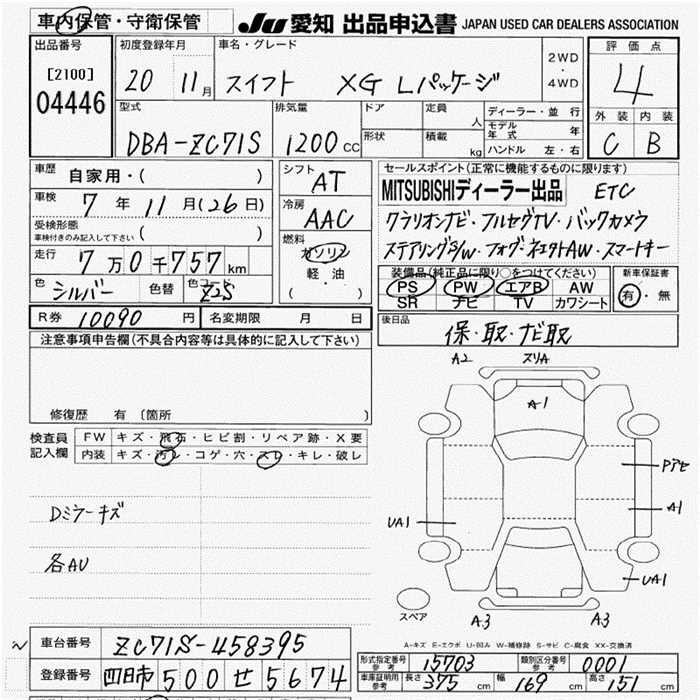 車内保管・守衛保管 JU 愛知 出品申込書 JAPAN USED CAR DEALERS ASSOCIATION
出品番号 [2100] 04446
初度登録年月 20 11月
車名・グレード スイフト XG Lパッケージ
2WD・4WD
評価点 4
外装 内装
C B
型式 DBA-ZC71S
排気量 1200cc
ドア 形状
定員 人
積載 kg
ディーラー・並行
モデル年式 年
ハンドル 左・右
車歴 自家用・( )
車検 7年11月(26日)
受検形態 車検付きのみ記入して下さい ( )
走行 7万0千757km
色 シルバー 色替 色コード Z2S
シフト AT
冷房 AAC
燃料 ガソリン 軽油 ( )
セールスポイント(正常に機能するものに限ります)
MITSUBISHIディーラー出品 ETC
クラリオンナビ・フルセグTV・バックカメラ
ステアリングS/W・フォグ・社外AW・スマートキー
装備品(純正品に限り○をつけてください) 新車保証書
PS PW エアB AW 有・無
SR ナビ TV カワシート
R券 10090円 名変期限 月 日
後日品 保・取・ナビ取
注意事項申告欄(不具合内容等は具体的に記入して下さい)
修復歴 有 〔箇所 〕
検査員記入欄
FW キズ・飛石・ヒビ割・リペア跡・X要
内装 キズ・汚レ・コゲ・穴・スレ・キレ・破レ
Dミラーキズ
各AU
A2 スリA
A1
Pアセ
A1
UA1
UA1
スペア
A3 A3
A-キズ E-エクボ U-凹み W-補修跡 S-サビ C-腐食 XX-交換済
車台番号 ZC71S-458395
登録番号 四日市 500 せ 5674
形式指定番号 参考 15703 類別区分番号 参考 0001
車庫証明用 参考 長さ 375cm 幅 169cm 高さ 151cm